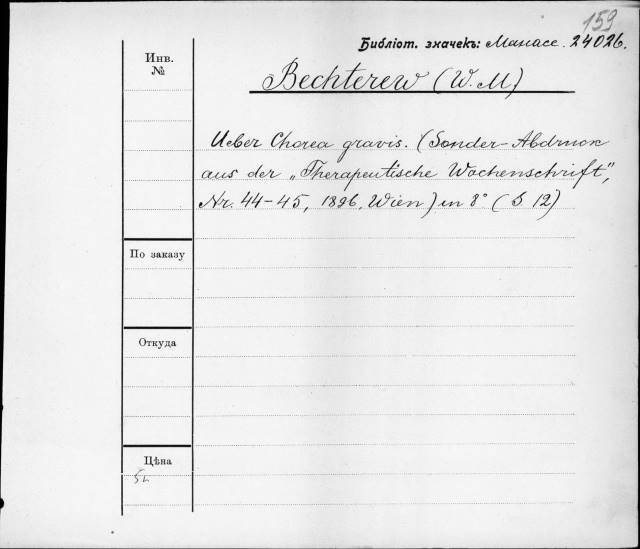 159
Библіот. значекъ: Манасс. 24026.
Инв.
№
Bechterew (W. M)
Ueber Chorea gravis. (Sonder-Abdruck
aus der „Therapeutische Wochenschrift",
Nr. 44-45, 1896, Wien) in 8° (S 12)
По заказу
Откуда
Цѣна